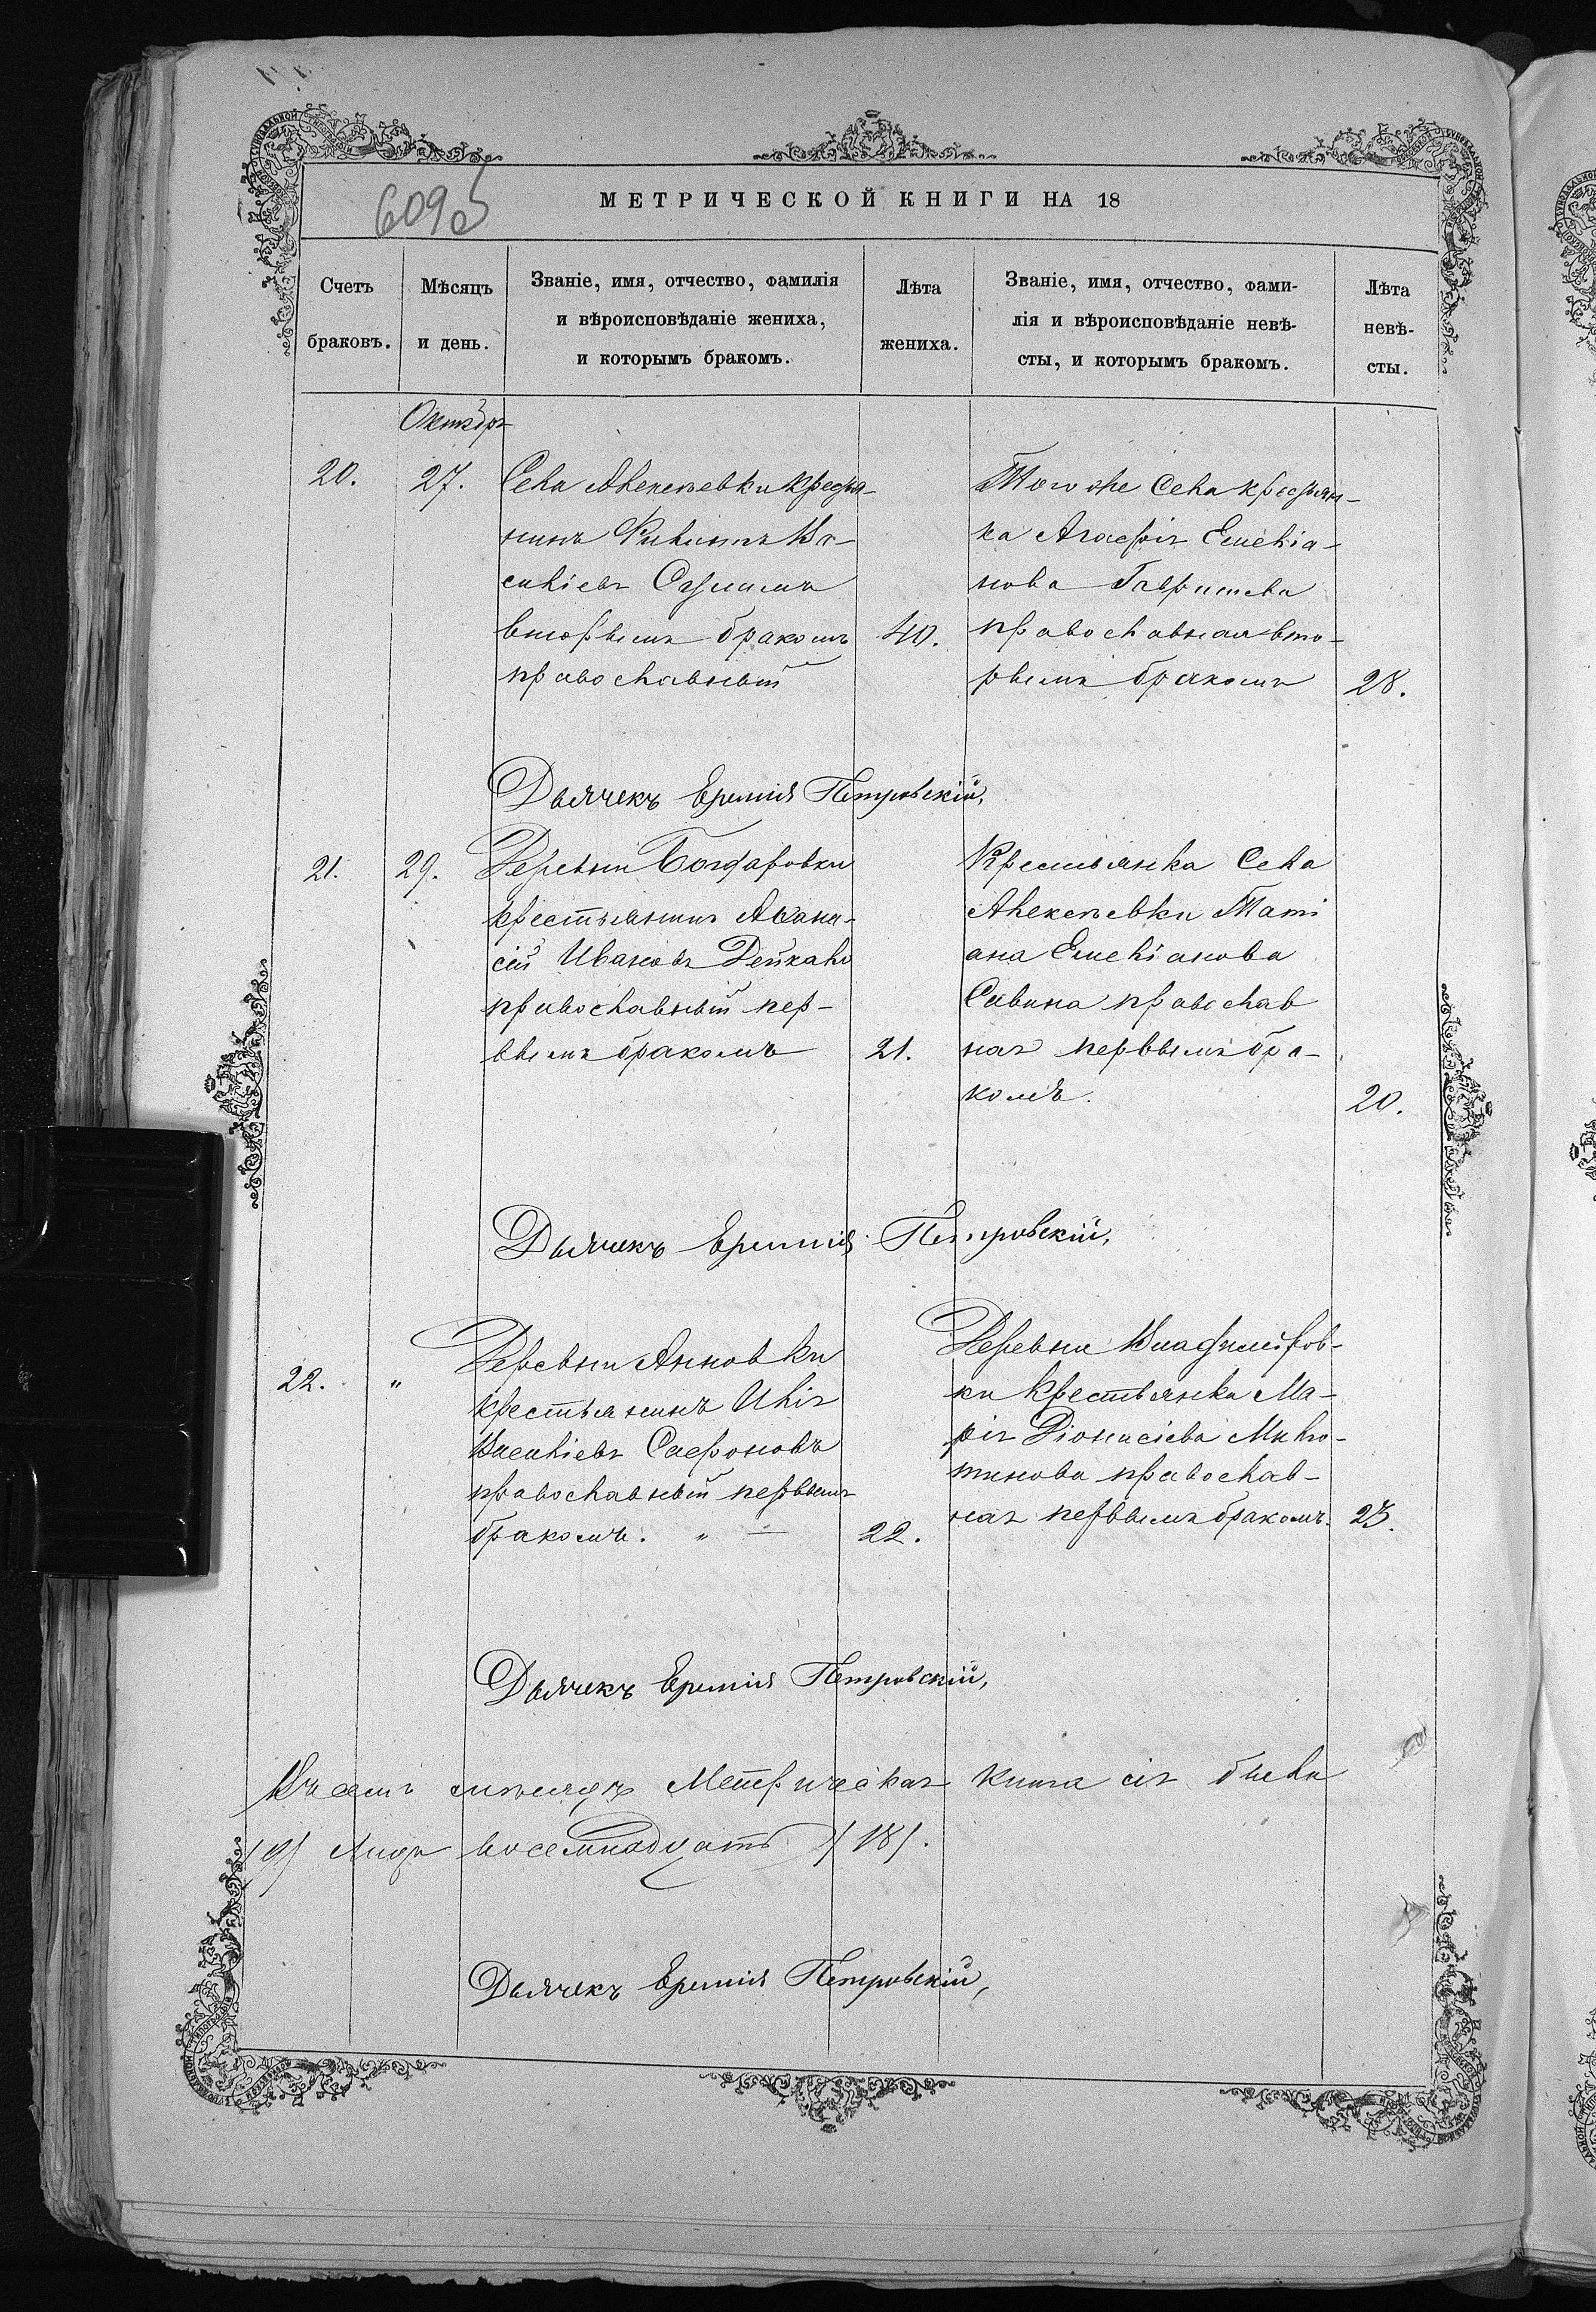 609об
МЕТРИЧЕСКОЙ КНИГИ НА 18
Счетъ браковъ.
Мѣсяцъ и день.
Званіе, имя, отчество, фамилія
и вѣроисповѣданіе жениха,
и которымъ бракомъ.
Лѣта жениха.
Званіе, имя, отчество, фами-
лія и вѣроисповѣданіе невѣ-
сты, и которымъ бракомъ.
Лѣта невѣ-
сты.
Октябрь
20.
27.
Села Алексѣевки крестья-
нинъ Филиппъ Ва-
силіевъ
вторымъ бракомъ
православный
40.
Того же Села крестьян-
ка Агафія Емелія-
нова
православная вто-
рымъ бракомъ
28.
Дьячекъ Еремія Петровскій,
21.
29.
Деревни Бондаровки
крестьянинъ Афана-
сій Ивановъ Дейкало
православный пер-
вымъ бракомъ
21.
Крестьянка Села
Алексѣевки Тати
ана Емеліанова
Савина православ
ная первымъ бра-
комъ.
20.
Дьячекъ Еремія Петровскій,
22.
"
Деревни Анновки
крестьянинъ Илія
Василіевъ Сафоновъ
православный первымъ
бракомъ. " —
22.
Деревни Владимиров-
ки крестьянка Ма-
рія Діонисіева
православ-
ная первымъ бракомъ.
23.
Дьячекъ Еремія Петровскій,
Метрическая книга сія была
восемнадцать /18/.
Дьячекъ Еремія Петровскій,